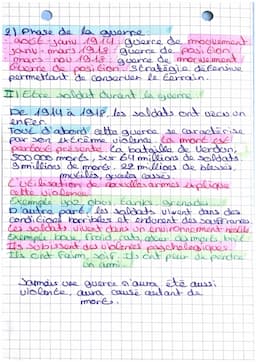 2) Phase de la guerre
août - janv 1914 guerre de mouvement
janv - mars 1918 guerre de position
mars - nov 1918 guerre de mouvement
Guerre de position : stratégie défensive
permettant de conserver le terrain.
II) Etre soldat durant la guerre
De 1914 à 1918, les soldats ont vécu un
enfer.
Tout d'abord cette guerre se caractérise
par son extrême violence. La mort est
partout présente. La bataille de Verdun,
300 000 morts, sur 64 millions de soldats
9 millions de morts. 22 millions de blessés,
mutilés, gueules cassées.
L'utilisation de nouvelles armes explique
cette violence.
Exemple : gaz, obus, tanks, grenades
D'autre part, les soldats vivent dans des
conditions horribles et endurent des souffrances.
Les soldats vivent dans un environnement hostile
Exemple : boue, froid, rats, odeur des morts, bruit
Ils subissent des violences psychologiques.
Ils ont faim, soif. Ils ont peur de perdre
un ami.
Jamais une guerre n'aura été aussi
violente, aura causé autant de
morts.